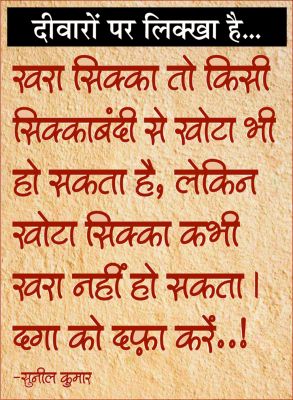 दीवारों पर लिक्खा है...
खरा सिक्का तो किसी
सिक्काबंदी से खोटा भी
हो सकता है, लेकिन
खोटा सिक्का कभी
खरा नहीं हो सकता।
दगा को दफ़ा करें..!
-सुनील कुमार